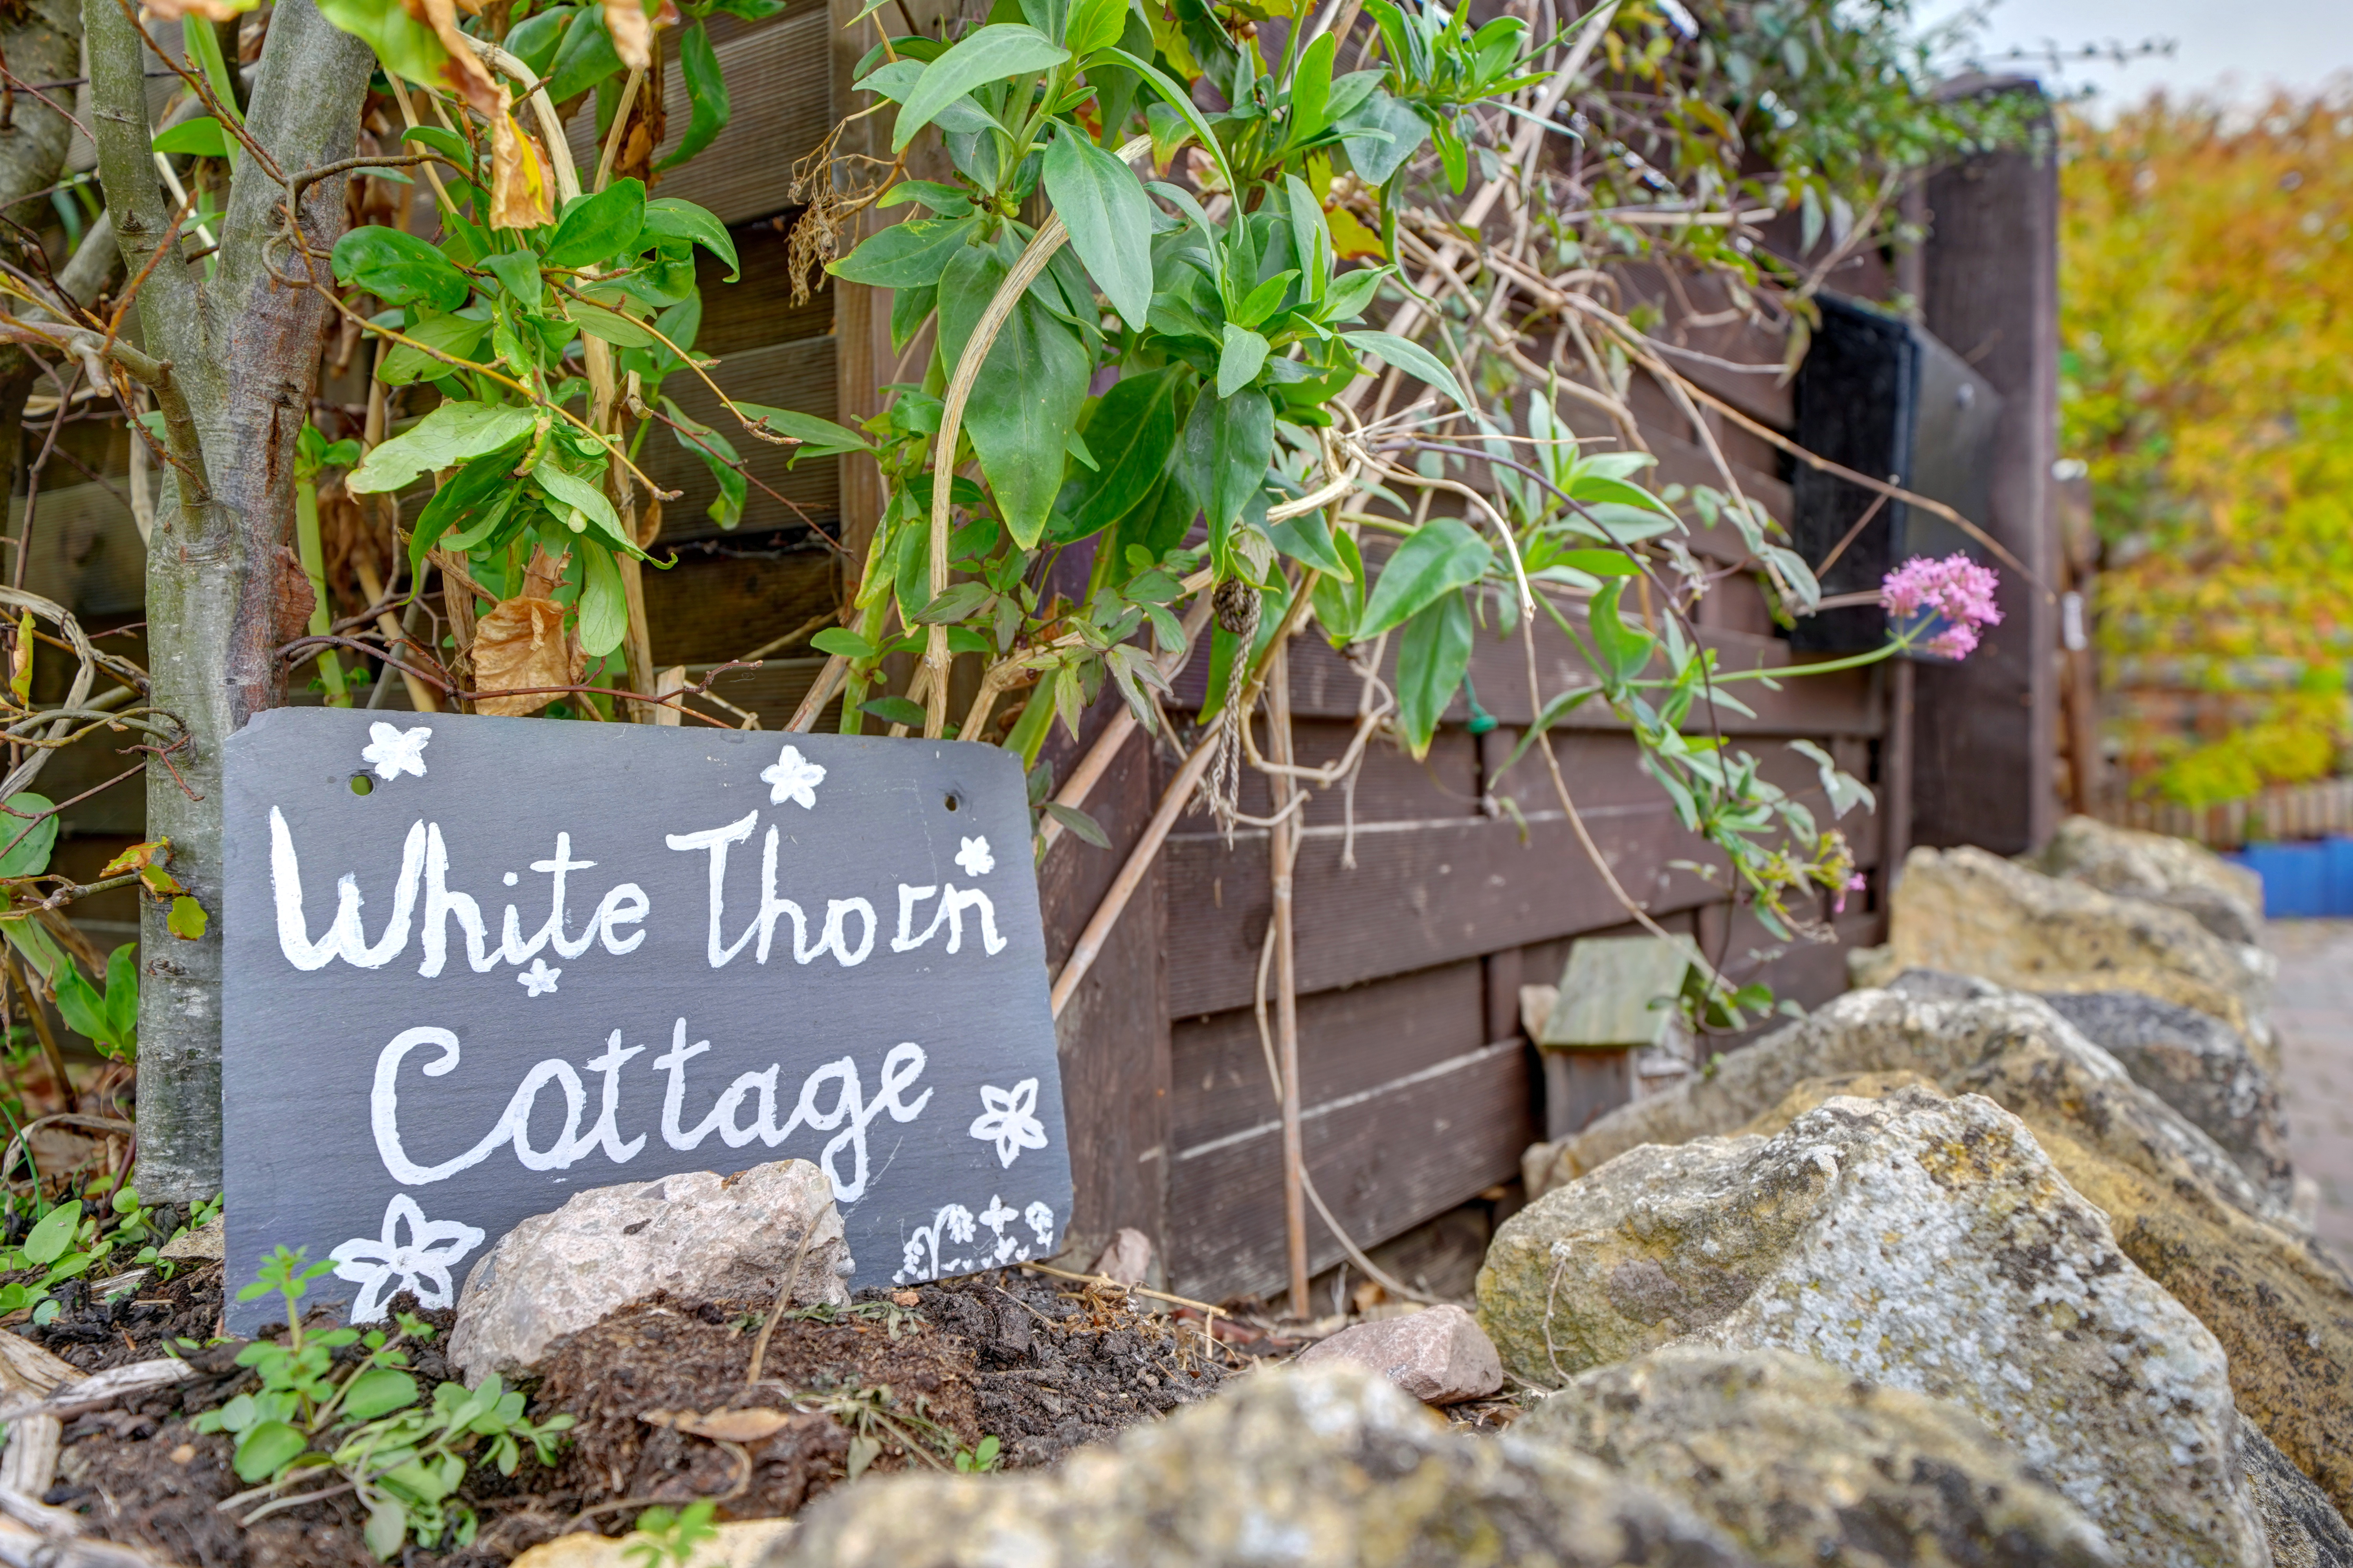 White Thorn
Cottage